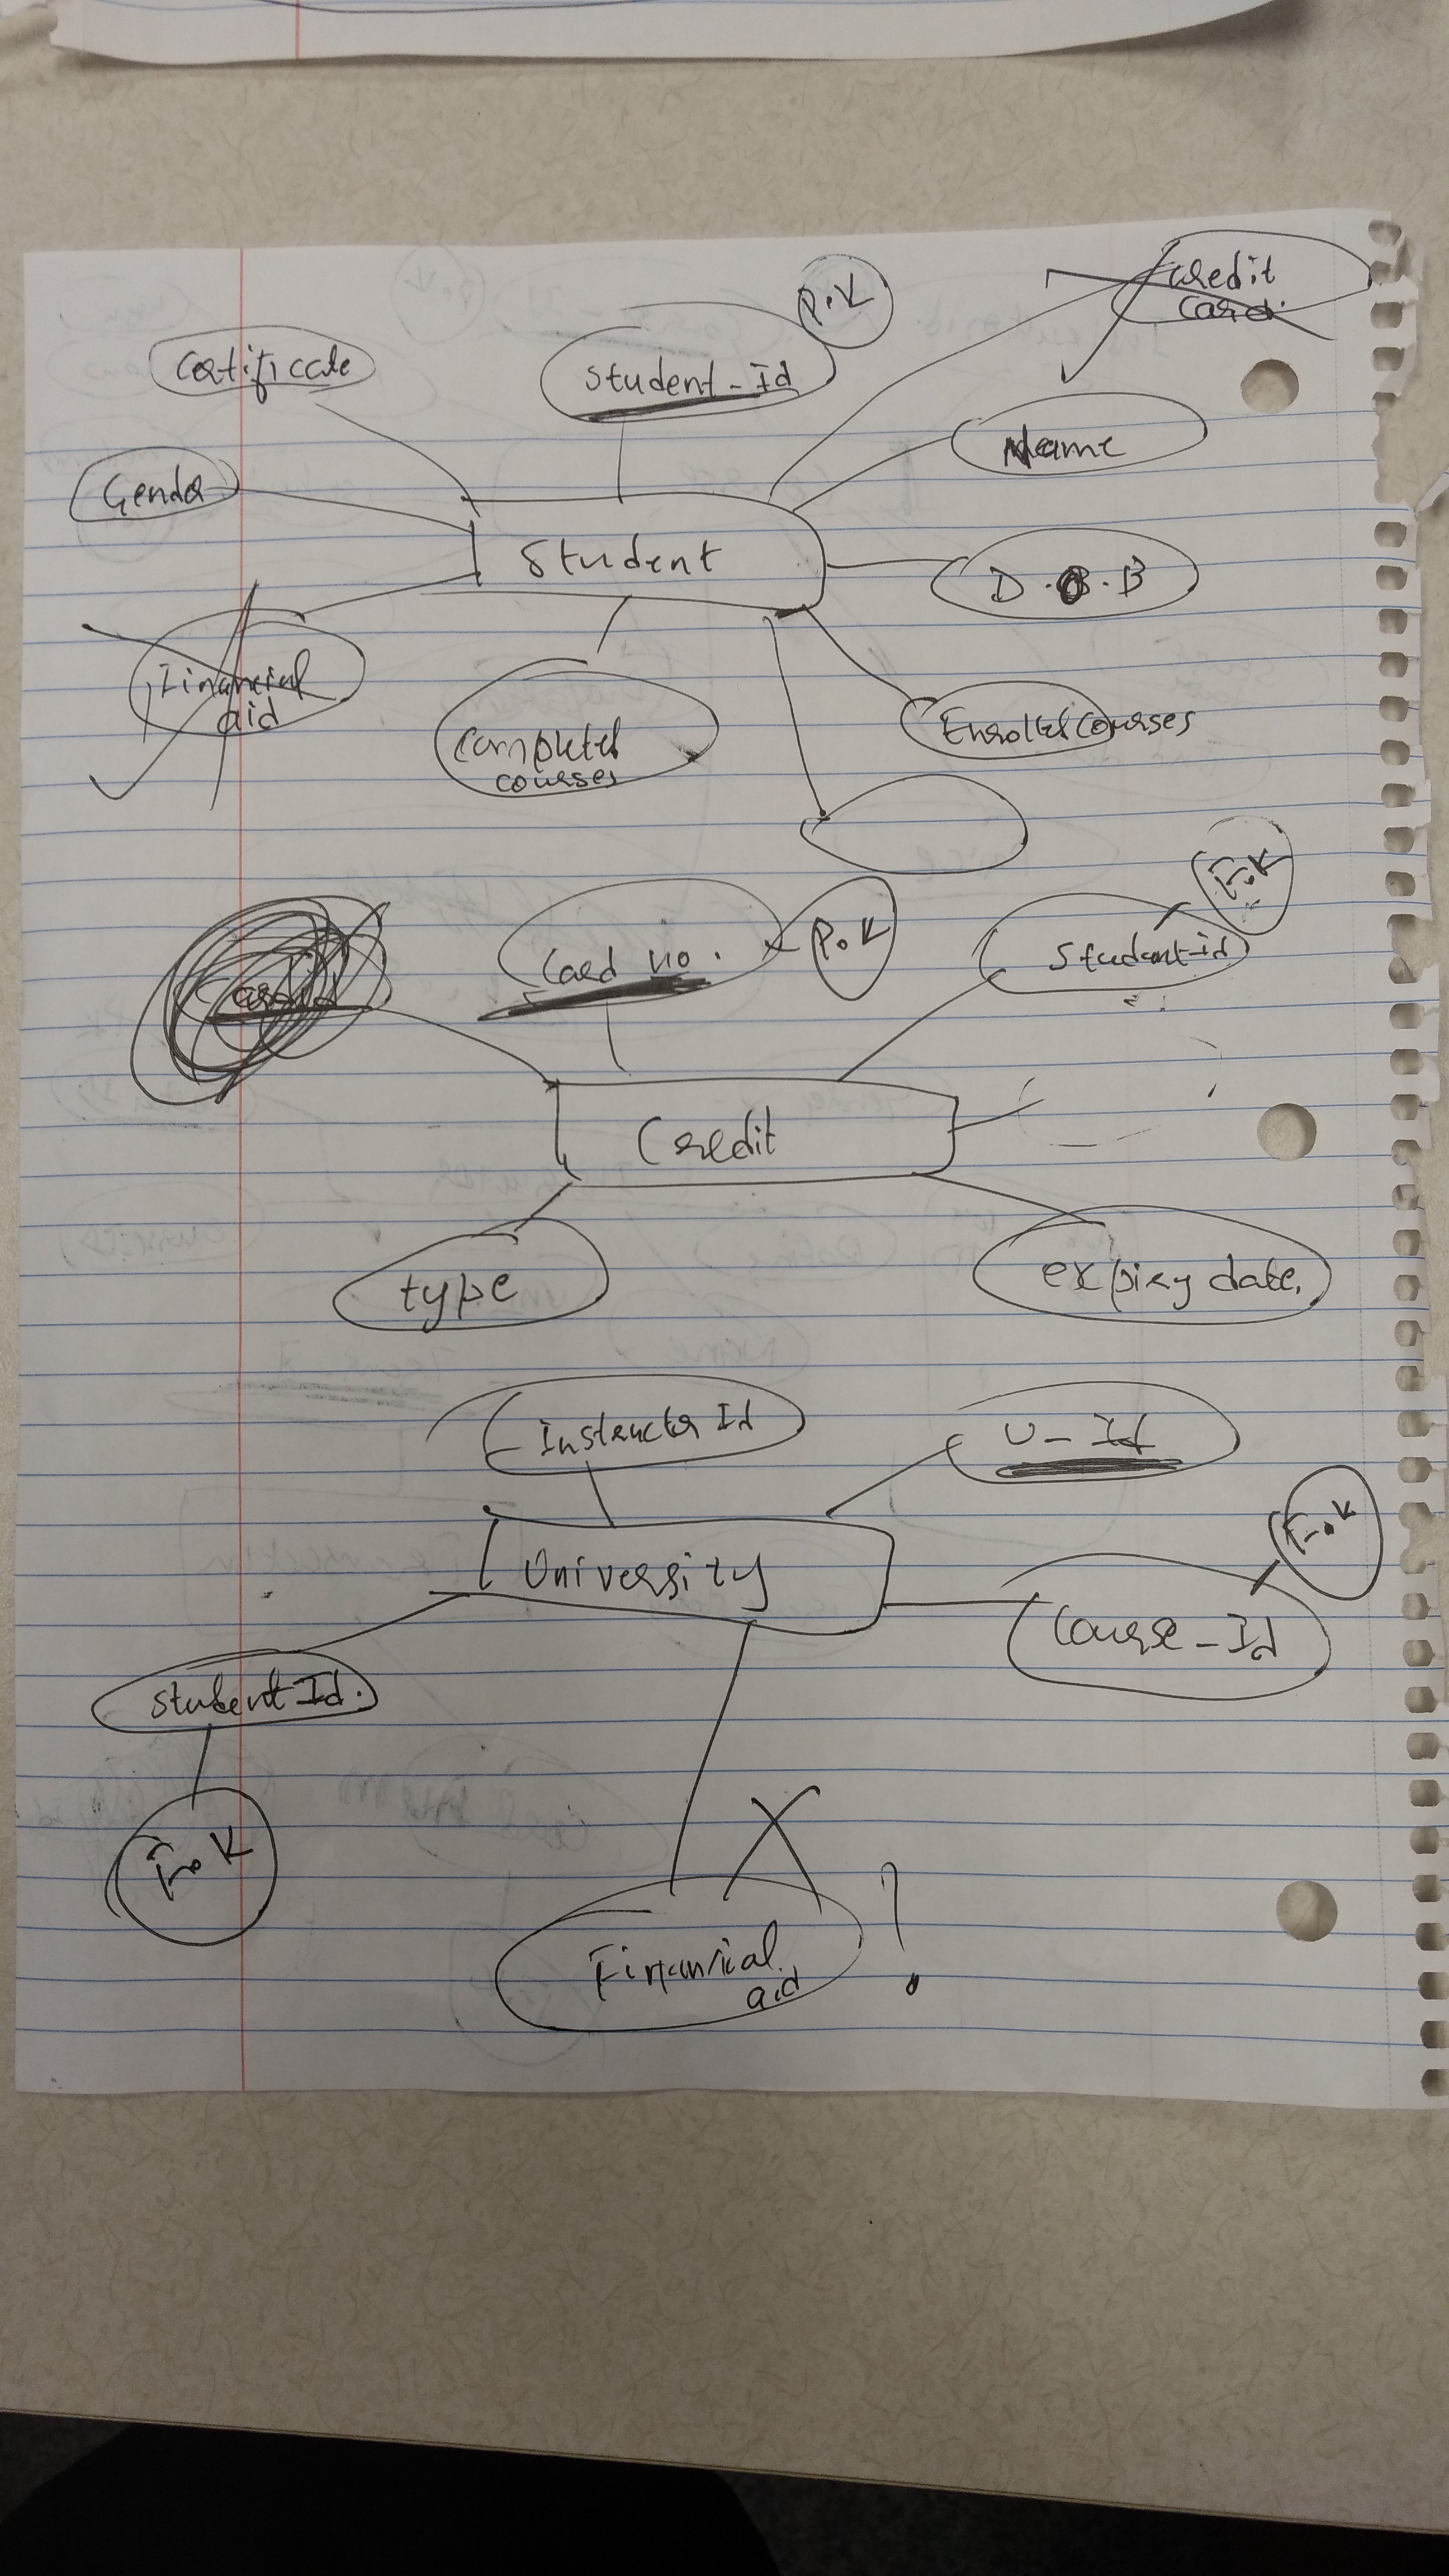 P.K
Credit
Card
Certificate
Student-Id
Name
Gender
Student
D.O.B
Financial
aid
Completed
courses
Enrolled courses
F.K
Card no.
P.K
Student-id
Credit
type
expiry date.
Instructor Id
U-Id
F.K
University
Course-Id
Student Id.
F.K
Financial
aid
?